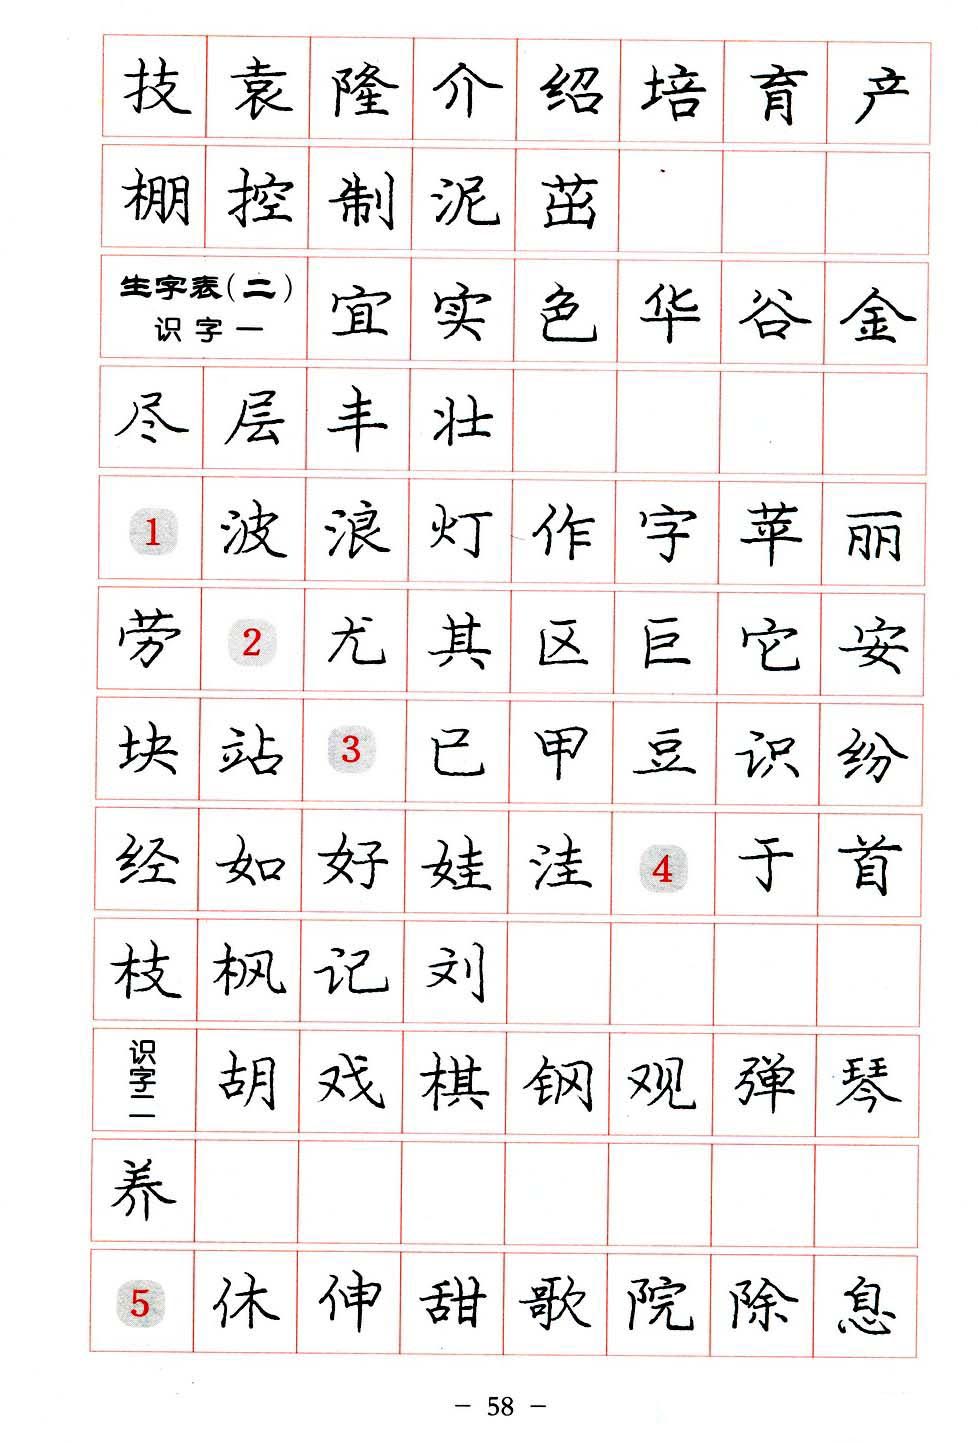 技 袁 隆 介 绍 培 育 产
棚 控 制 泥 茁
生字表(二)
识字一 宜 实 色 华 谷 金
尽 层 丰 壮
1 波 浪 灯 作 字 苹 丽
劳 2 尤 其 区 巨 它 安
块 站 3 已 甲 豆 识 纷
经 如 好 娃 洼 4 于 首
枝 枫 记 刘
识字二 胡 戏 棋 钢 观 弹 琴
养
5 休 伸 甜 歌 院 除 息
- 58 -